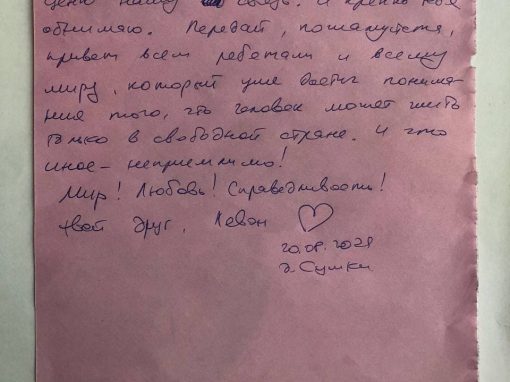 ценю нашу связь. И крепко тебя
обнимаю. Передай, пожалуйста,
привет всем ребятам и всему
миру, который уже достиг понима-
ния того, что человек может жить
только в свободной стране. И что
иное – неприемлимо!
Мир! Любовь! Справедливость!
твой друг, Леван ♡
20.08.2021
г. Сумки